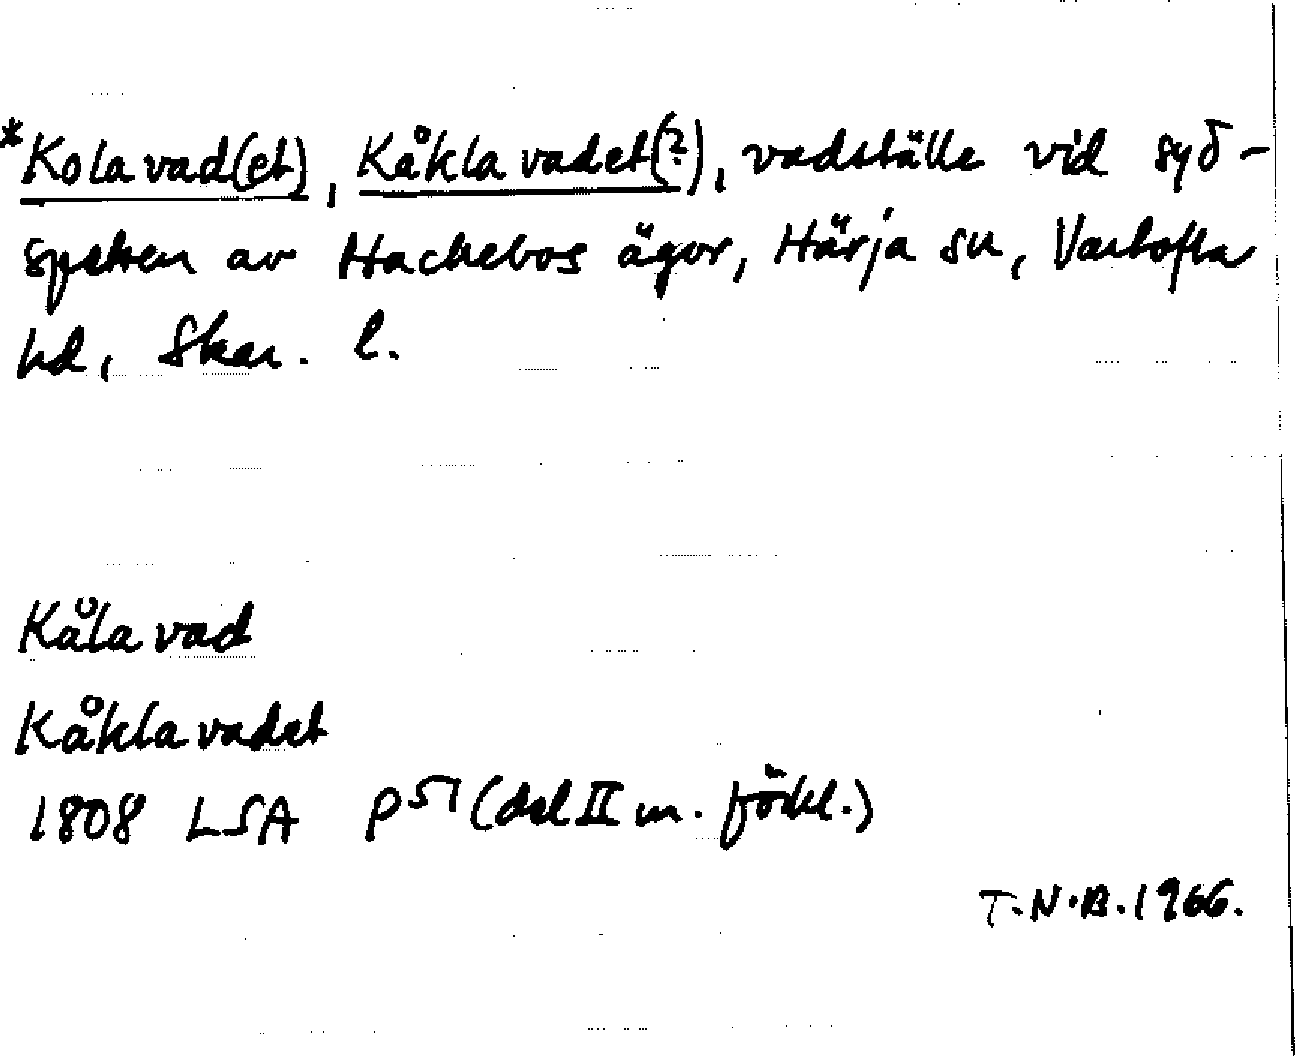 *Kolavad(et), Kåklavadet(?), vadställe vid syd-
spetsen av Hackebos ägor, Härja sn, Vartofta
hd, Skar. l.
Kålavad
Kåklavadet
1808 LSA P 51 (del II m. förkl.)
T.N.B. 1966.